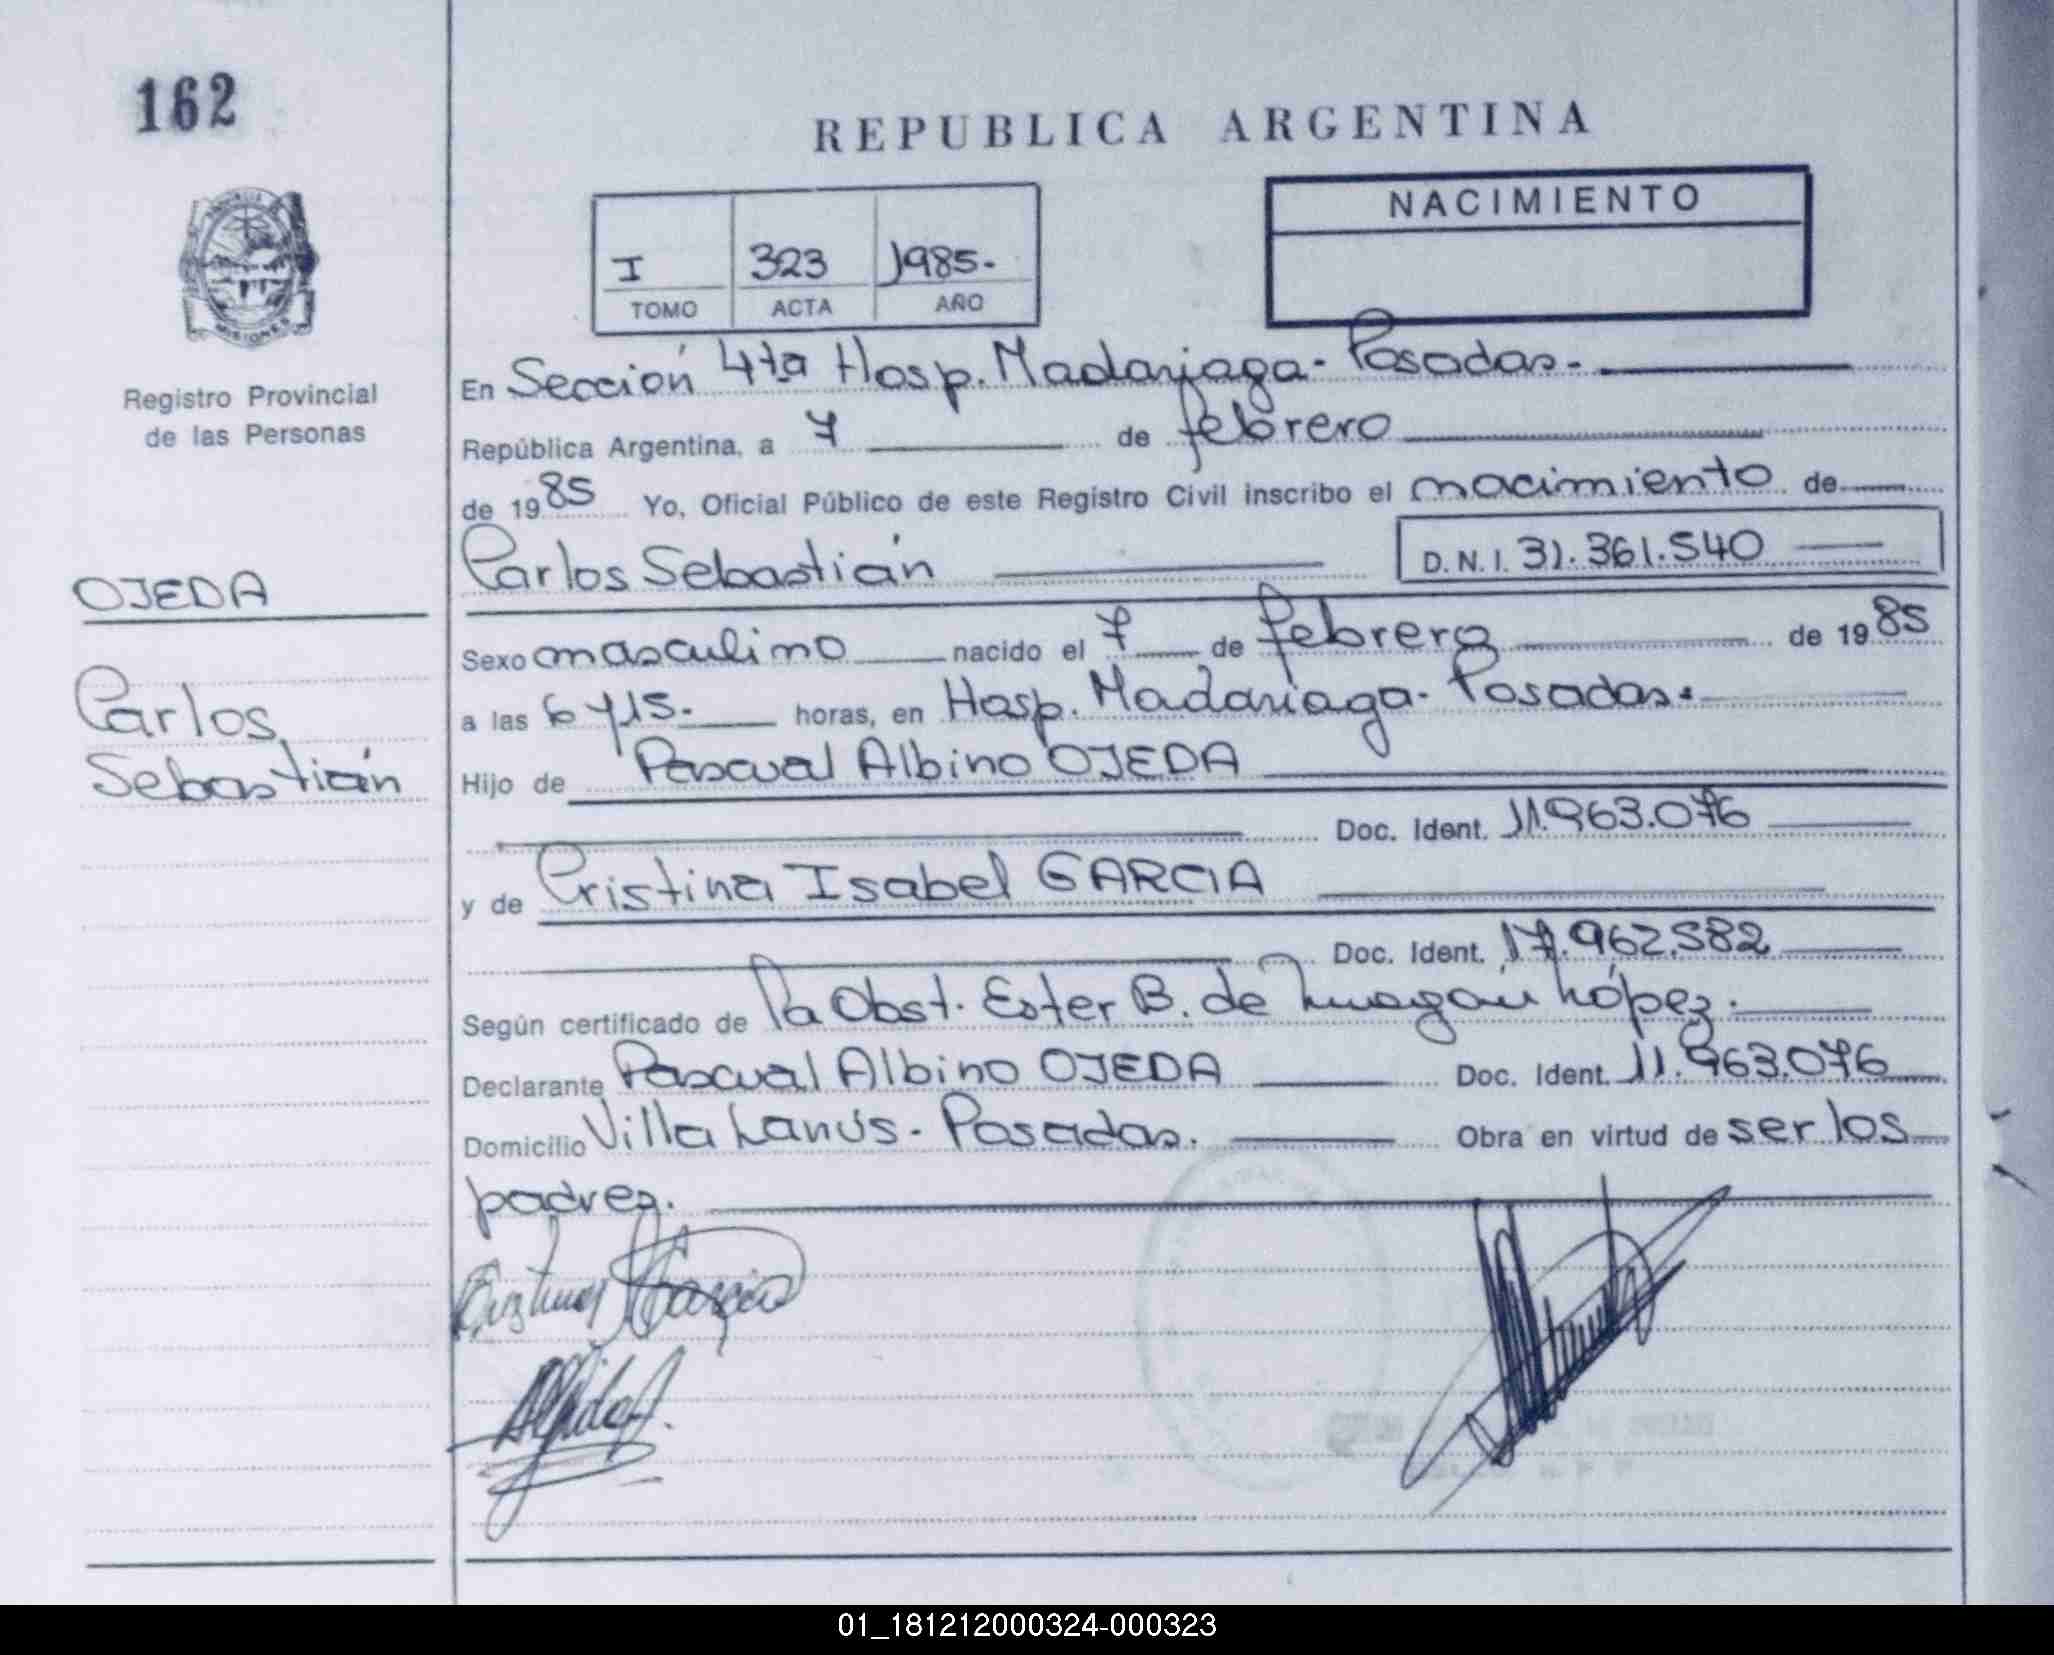 162
REPUBLICA ARGENTINA
NACIMIENTO
I 323 1985.
TOMO ACTA AÑO
MISIONES
Registro Provincial
de las Personas
OJEDA
Carlos
Sebastián
En Sección 4ta Hosp. Madariaga - Posadas.
República Argentina, a 7 de febrero
de 1985 Yo, Oficial Público de este Registro Civil inscribo el nacimiento de
Carlos Sebastián D.N.I. 31.361.540
Sexo masculino nacido el 7 de febrero de 1985
a las 6 y 15. horas, en Hosp. Madariaga - Posadas.
Hijo de Pascual Albino OJEDA
Doc. Ident. 11.963.076
y de Cristina Isabel GARCIA
Doc. Ident. 17.962.582
Según certificado de la Obst. Ester B. de López.
Declarante Pascual Albino OJEDA Doc. Ident. 11.963.076
Domicilio Villa Lanús - Posadas. Obra en virtud de ser los
padres.
01_181212000324-000323